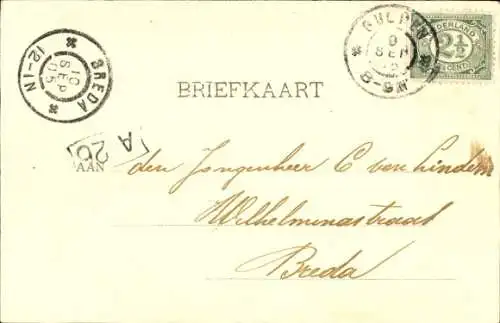 GULPEN
9
SEP
8-9N
NEDERLAND
2½
CENT
BREDA
10
SEP
05
12-1N
BRIEFKAART
A
20
AAN
den Jongenheer C van Lindem
Wilhelminastraat
Breda